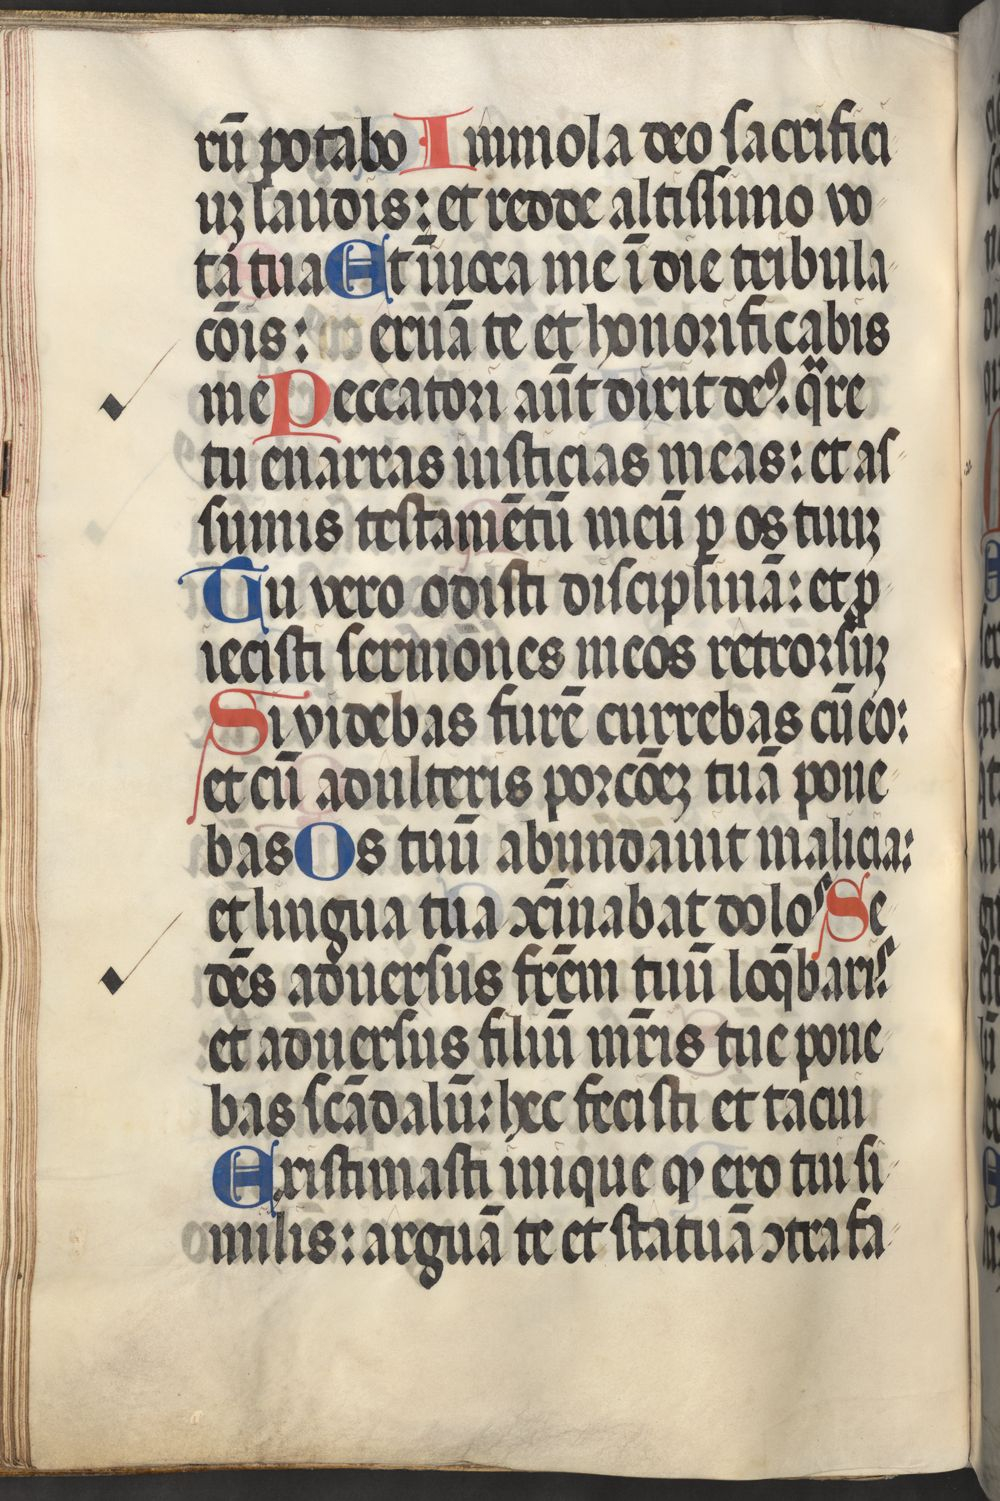 rū potabo Immola deo sacrifici
uz laudis: et redde altissimo vo
ta tua Et īuoca me ī die tribula
cōis: eruā te et honorificabis
me Peccatori aūt dixit deꝰ: qᷓre
tu enarras iusticias meas: et as
sumis testamētū meū ꝑ os tuuz
Tu vero odisti disciplinā: et ꝓ
iecisti sermones meos retrorsuz
Si videbas furē currebas cū eo:
et cū adulteris porcōez tuā pone
bas Os tuū abundauit malicia:
et lingua tua ꝯcinnabat dolos Se
dēs aduersus frēm tuū loq̄baris
et aduersus filiū mr̄is tue pone
bas scādalū: hec fecisti et tacui
Existimasti inique ꝙ ero tui si
milis: arguā te et statuā ꝯtra fa